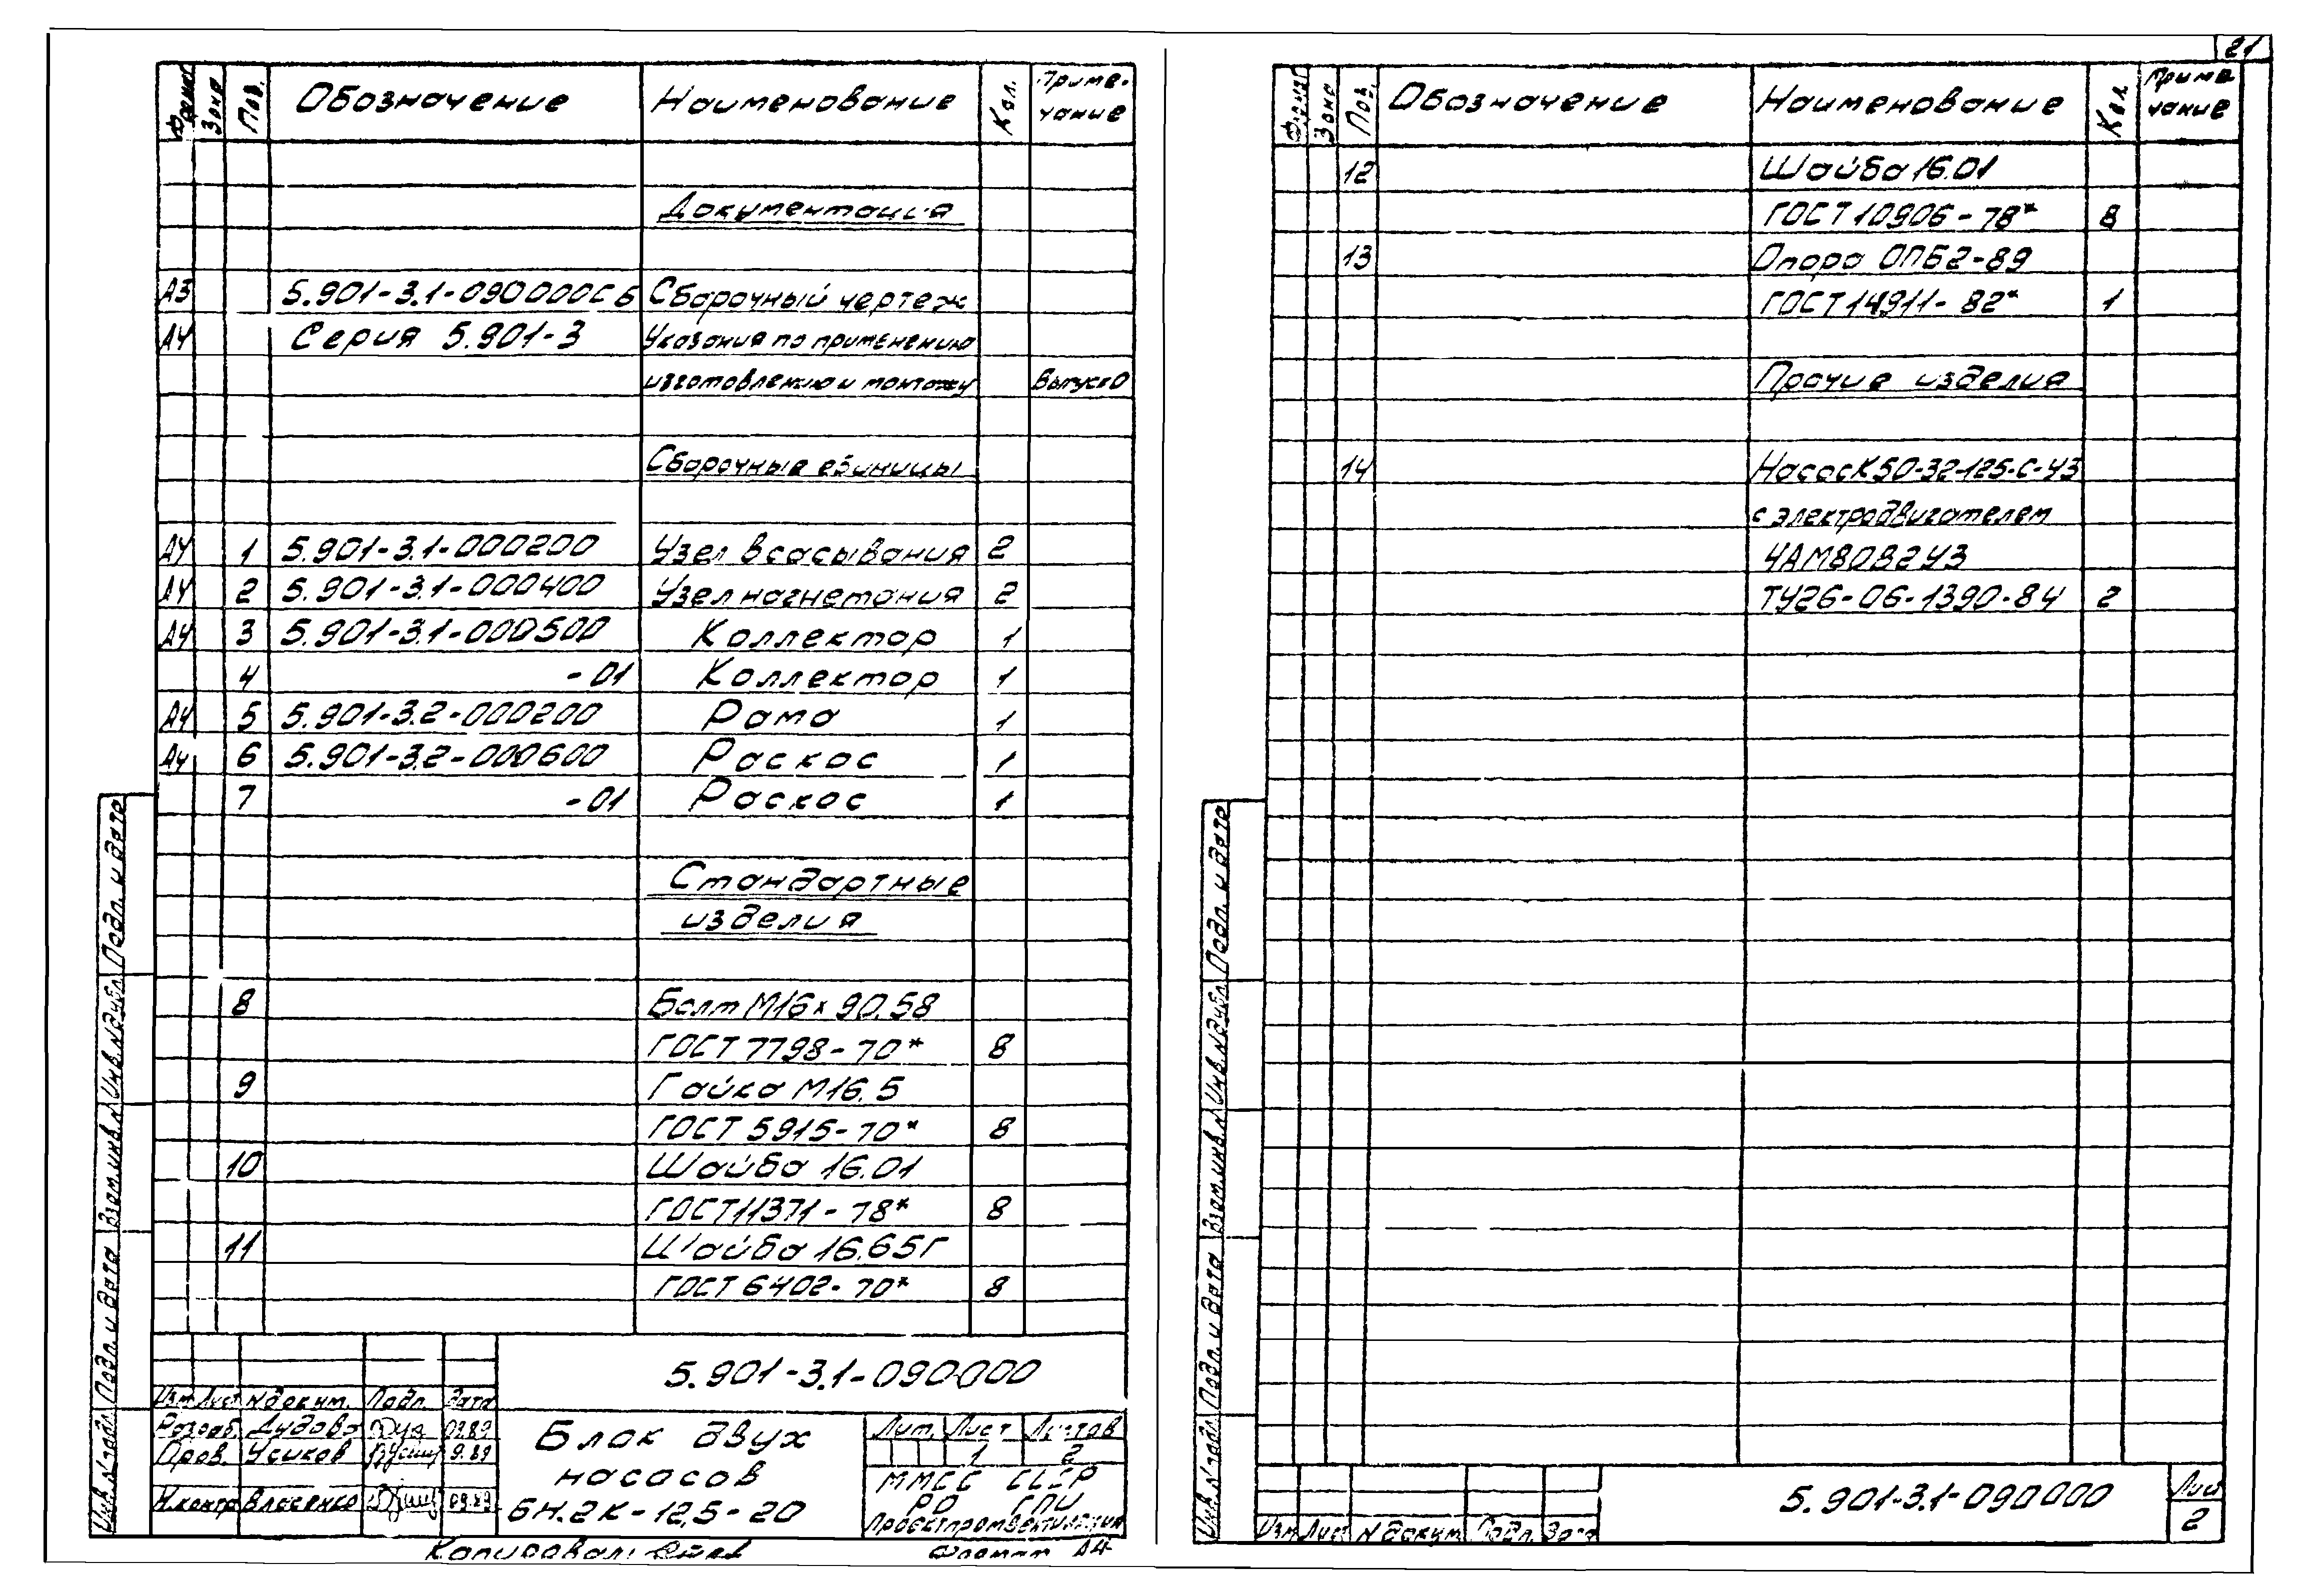 21
Формат Зона Поз. Обозначение Наименование Кол. Приме-
чание
Документация
А3 5.901-3.1-090000СБ Сборочный чертеж
А4 Серия 5.901-3 Указания по применению
изготовлению и монтажу Выпуск 0
Сборочные единицы
А4 1 5.901-3.1-000200 Узел всасывания 2
А4 2 5.901-3.1-000400 Узел нагнетания 2
А4 3 5.901-3.1-000500 Коллектор 1
4 -01 Коллектор 1
А4 5 5.901-3.2-000200 Рама 1
А4 6 5.901-3.2-000600 Раскос 1
7 -01 Раскос 1
Стандартные
изделия
8 Болт М16х90.58
ГОСТ 7798-70* 8
9 Гайка М16.5
ГОСТ 5915-70* 8
10 Шайба 16.01
ГОСТ 11371-78* 8
11 Шайба 16.65Г
ГОСТ 6402-70* 8
Подп. и дата
Инв.№дубл.
Взам.инв.№
Подп. и дата
Инв.№подл.
5.901-3.1-090000
Изм. Лист №докум. Подп. Дата
Разраб. Дудова 09.89
Пров. Усиков 9.89
Н.контр. Власенко 09.89
Блок двух
насосов
БН.2К-12,5-20
Лит. Лист Листов
1 2
ММСС СССР
РО ГПИ
Проектпромвентиляция
Копировал: Формат А4
Формат Зона Поз. Обозначение Наименование Кол. Приме
чание
12 Шайба 16.01
ГОСТ 10906-78* 8
13 Опора ОПБ2-89
ГОСТ 14911-82* 1
Прочие изделия
14 Насос К50-32-125-С-У3
с электродвигателем
4АМ80В2У3
ТУ26-06-1390-84 2
Подп. и дата
Инв.№дубл.
Взам.инв.№
Подп. и дата
Инв.№подл.
Изм. Лист №докум. Подп. Дата
5.901-3.1-090000
Лист
2